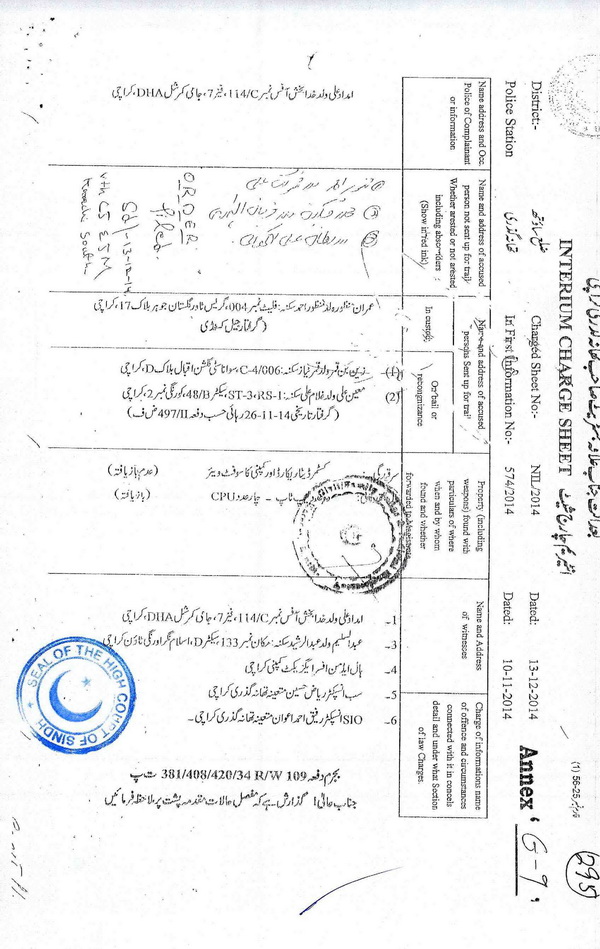 (295)
فارم نمبر 25-56 (1)
Annex ‘ G-9 ’
بعدالت جناب علاقہ مجسٹریٹ صاحب تھانہ گذری کراچی
INTERIUM CHARGE SHEET
District:- ضلع ساؤتھ Charged Sheet No:- NIL/2014 Dated: 13-12-2014
Police Station تھانہ گذری In First Information No:- 574/2014 Dated: 10-11-2014
Name address and Occ
Police of Complainant
or information
Name and address of accused
person not sent up for trail
Whether arested or not arested
including absconders
(Show in red ink)
Name and address of accused
persons Sent up for trail
In custody
On bail or
recongnizance
Property (including
weapons) found with
particulars of where
when and by whom
found and whether
forwarded to Magistrate
Name and Address
of witnesses
Charge of informations name
of offence and circumstances
connected with it in concels
detail and under what Section
of law Charges.
امداد علی ولد خدا بخش آفس نمبر 114/C، فیز 7، جامی کمرشل DHA، کراچی
ORDER
Filed
Sd/-13-12-14
Vth CJ & JM
Karachi South
عمران منظور ولد منظور احمد سکنہ: فلیٹ نمبر 004، گریس ٹاور گلستان جوہر بلاک 17، کراچی
(1)- C-4/006، گلشن اقبال بلاک D، کراچی
(2) معین علی ولد غلام علی سکنہ: ST-3، RS-1، سیکٹر 48/B، کورنگی نمبر 2، کراچی
(گرفتار تاریخی 14-11-26 رہائی حسب دفعہ 497/II ض ف)
کسٹمر ڈیٹا ریکارڈ اور کمپنی کا سوفٹ ویئر (عدم بازیافتہ)
لیپ ٹاپ - چار عدد CPU (بازیافتہ)
1- امداد علی ولد خدا بخش آفس نمبر 114/C، فیز 7، جامی کمرشل DHA، کراچی
3- عبدالسلیم ولد عبدالرشید سکنہ: مکان نمبر 133، سیکٹر D، اسلام نگر اورنگی ٹاؤن کراچی
4- کمپنی کراچی
5- سب انسپکٹر ریاض حسین متعینہ تھانہ گذری کراچی
6- SIO انسپکٹر رفیق احمد اعوان متعینہ تھانہ گذری کراچی۔
بجرم دفعہ 381/408/420/34 R/W 109 ت پ
جناب عالی! گذارش ہے کہ مفصل حالات مقدمہ پشت پر ملاحظہ فرمائیں
SEAL OF THE HIGH COURT OF SINDH